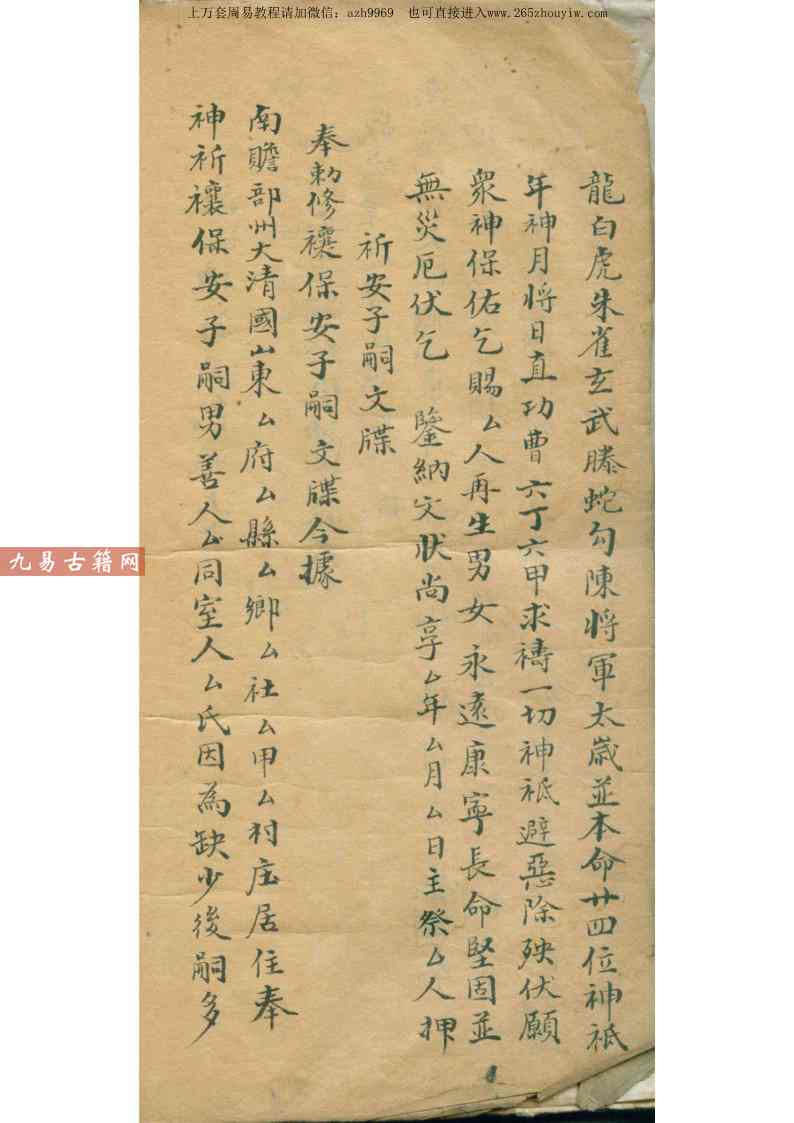 上万套周易教程请加微信：azh9969　也可直接进入www.265zhouyiw.com
龍白虎朱雀玄武螣蛇勾陳將軍太嵗並本命廿四位神祇
年神月將日直功曹六丁六甲求禱一切神祇避惡除殃伏願
衆神保佑乞賜厶人再生男女永遠康寧長命堅固並
無災厄伏乞　鑒納文狀尚享厶年厶月厶日主祭厶人押
祈安子嗣文牒
奉勅修禳保安子嗣文牒今據
南贍部州大清國山東厶府厶縣厶鄉厶社厶甲厶村庄居住奉
神祈禳保安子嗣男善人厶同室人厶氏因為缺少後嗣多
九易古籍网